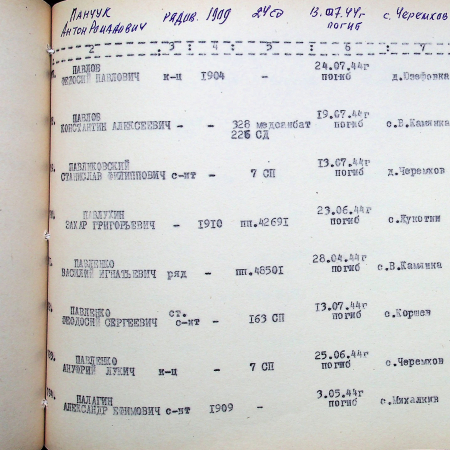 Панчук рядов. 1909 24 сд 13.07.44г с. Черемхов
Антон Романович погиб
2 : 3 : 4 : 5 : 6 : 7
ПАВЛОВ 24.07.44г
ФЕДОСИЙ ПАВЛОВИЧ к-ц 1904 - погиб д.Юзефовка
ПАВЛОВ 19.07.44г
КОНСТАНТИН АЛЕКСЕЕВИЧ - - 328 медсанбат погиб с.В.Камянка
226 СД
ПАВЛИКОВСКИЙ 13.07.44г
СТАНИСЛАВ ФИЛИППОВИЧ с-нт - 7 СП погиб д.Черемхов
ПАВЛУХИН 23.06.44г
ЗАХАР ГРИГОРЬЕВИЧ - 1910 пп.42691 погиб с.Жукотки
ПАВЛЕНКО 28.04.44г
ВАСИЛИЙ ИГНАТЬЕВИЧ ряд - пп.48501 погиб с.В.Камянка
ПАВЛЕНКО ст. 13.07.44г
ФЕОДОСИЙ СЕРГЕЕВИЧ с-нт - 163 СП погиб с.Коршев
ПАВЛЕНКО 25.06.44г
АНУФРИЙ ЛУКИЧ к-ц - 7 СП погиб с.Черемхов
ПАЛАГИН 3.05.44г
АЛЕКСАНДР ЕФИМОВИЧ с-нт 1909 - погиб с.Михалкив